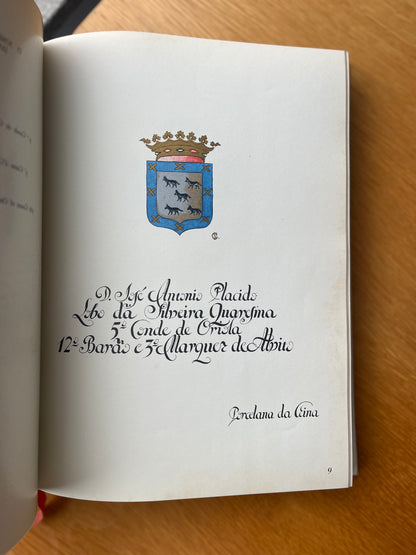 D. José Antonio Placido
Lobo da Silveira Quaresma
5º Conde de Oriola
12º Barão e 3º Marquez de Alvito
Porcelana da China
9